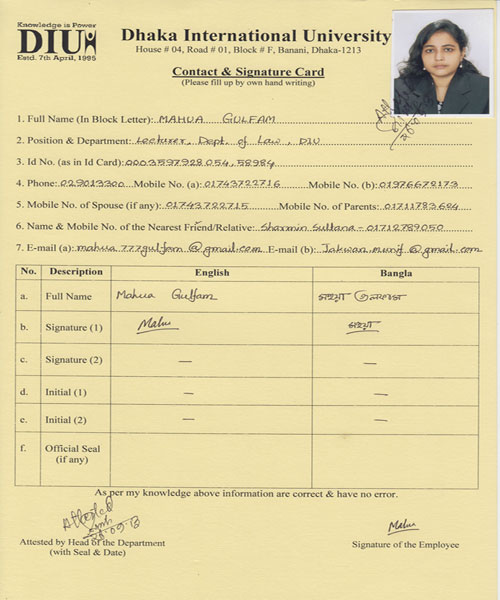 Knowledge is Power
DIU
Estd. 7th April, 1995
Dhaka International University
House # 04, Road # 01, Block # F, Banani, Dhaka-1213
Contact & Signature Card
(Please fill up by own hand writing)
1. Full Name (In Block Letter): MAHUA GULFAM
2. Position & Department: Lecturer, Dept. of Law, DIU
3. Id No. (as in Id Card): 0003597928054, 58984
4. Phone: 029013300 Mobile No. (a): 01743722716 Mobile No. (b): 01976672173
5. Mobile No. of Spouse (if any): 01743722715 Mobile No. of Parents: 01711783604
6. Name & Mobile No. of the Nearest Friend/Relative: Sharmin Sultana - 01712789050
7. E-mail (a): mahua.777gulfam@gmail.com E-mail (b): Jakwan.munif@gmail.com
No. Description English Bangla
a. Full Name Mahua Gulfam মাহুয়া গুলফাম
b. Signature (1) Mahua মাহুয়া
c. Signature (2) — —
d. Initial (1) — —
e. Initial (2) — —
f. Official Seal
(if any)
As per my knowledge above information are correct & have no error.
Attested
Mahua
Attested by Head of the Department
(with Seal & Date)
Signature of the Employee